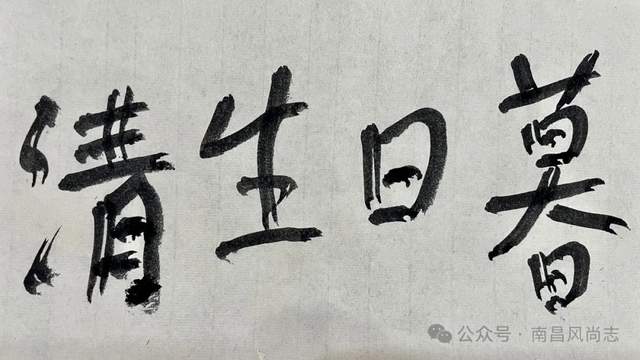 暮日生清
公众号·南昌风尚志